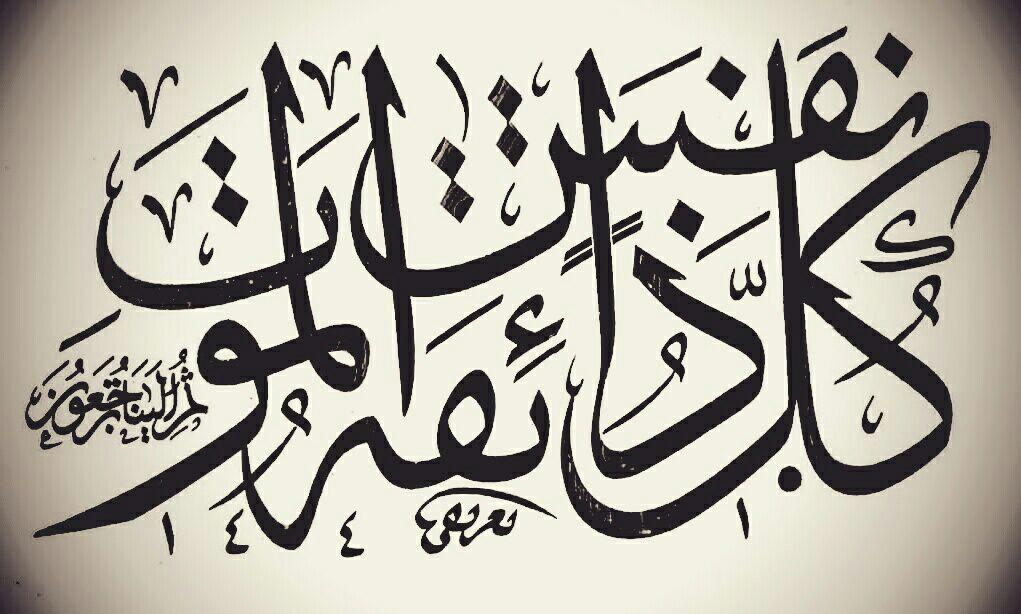 كُلُّ نَفْسٍ ذَائِقَةُ الْمَوْتِ
ثُمَّ إِلَيْنَا تُرْجَعُونَ